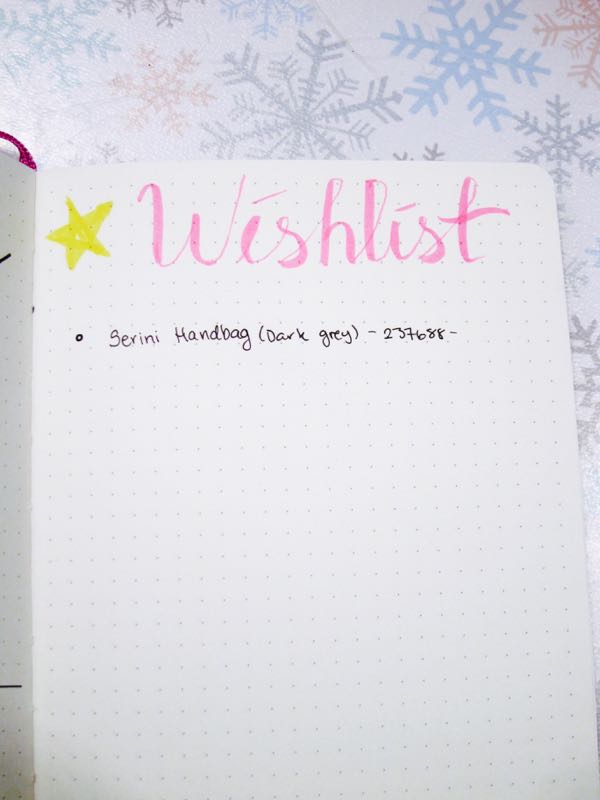 Wishlist
Serini Handbag (Dark grey) - 237688 -